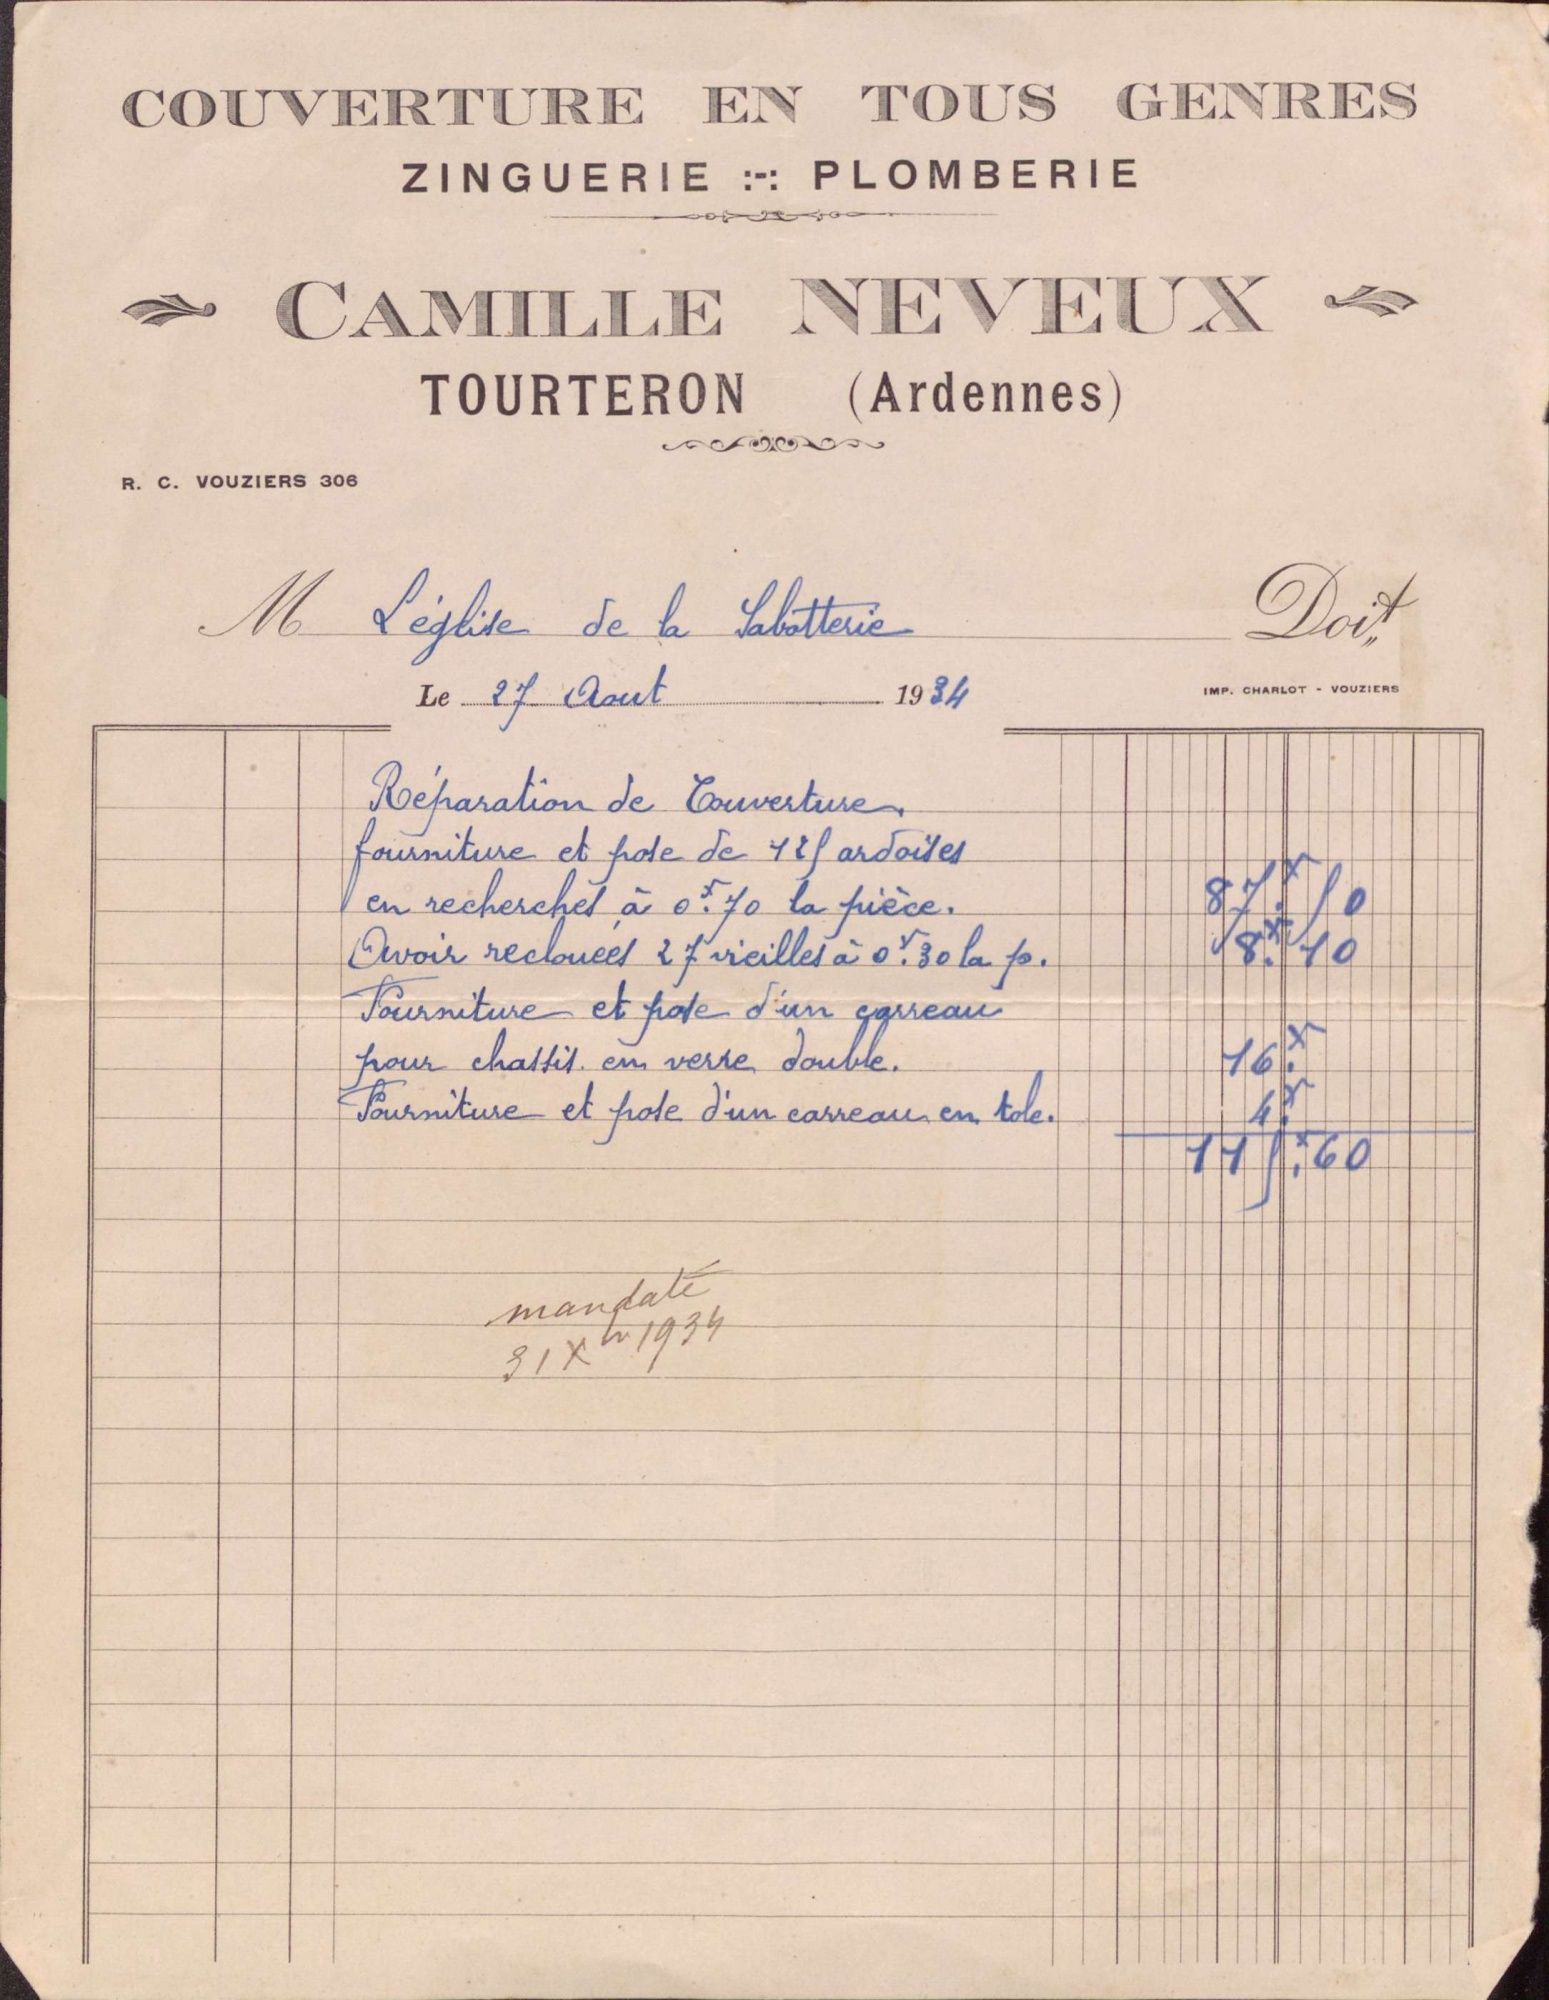 COUVERTURE EN TOUS GENRES
ZINGUERIE :-: PLOMBERIE
CAMILLE NEVEUX
TOURTERON (Ardennes)
R. C. VOUZIERS 306
M L'église de la Sabotterie Doit
Le 27 Aout 1934
IMP. CHARLOT - VOUZIERS
Réparation de Couverture.
fourniture et pose de 125 ardoises
en recherches à 0f.70 la pièce. 87f.50
Avoir reclouées 27 vieilles à 0f.30 la p. 8f.10
Fourniture et pose d'un carreau
pour chassis en verre double. 16f.
Fourniture et pose d'un carreau en tole. 4f.
115f.60
mandaté
31 Xbre 1934